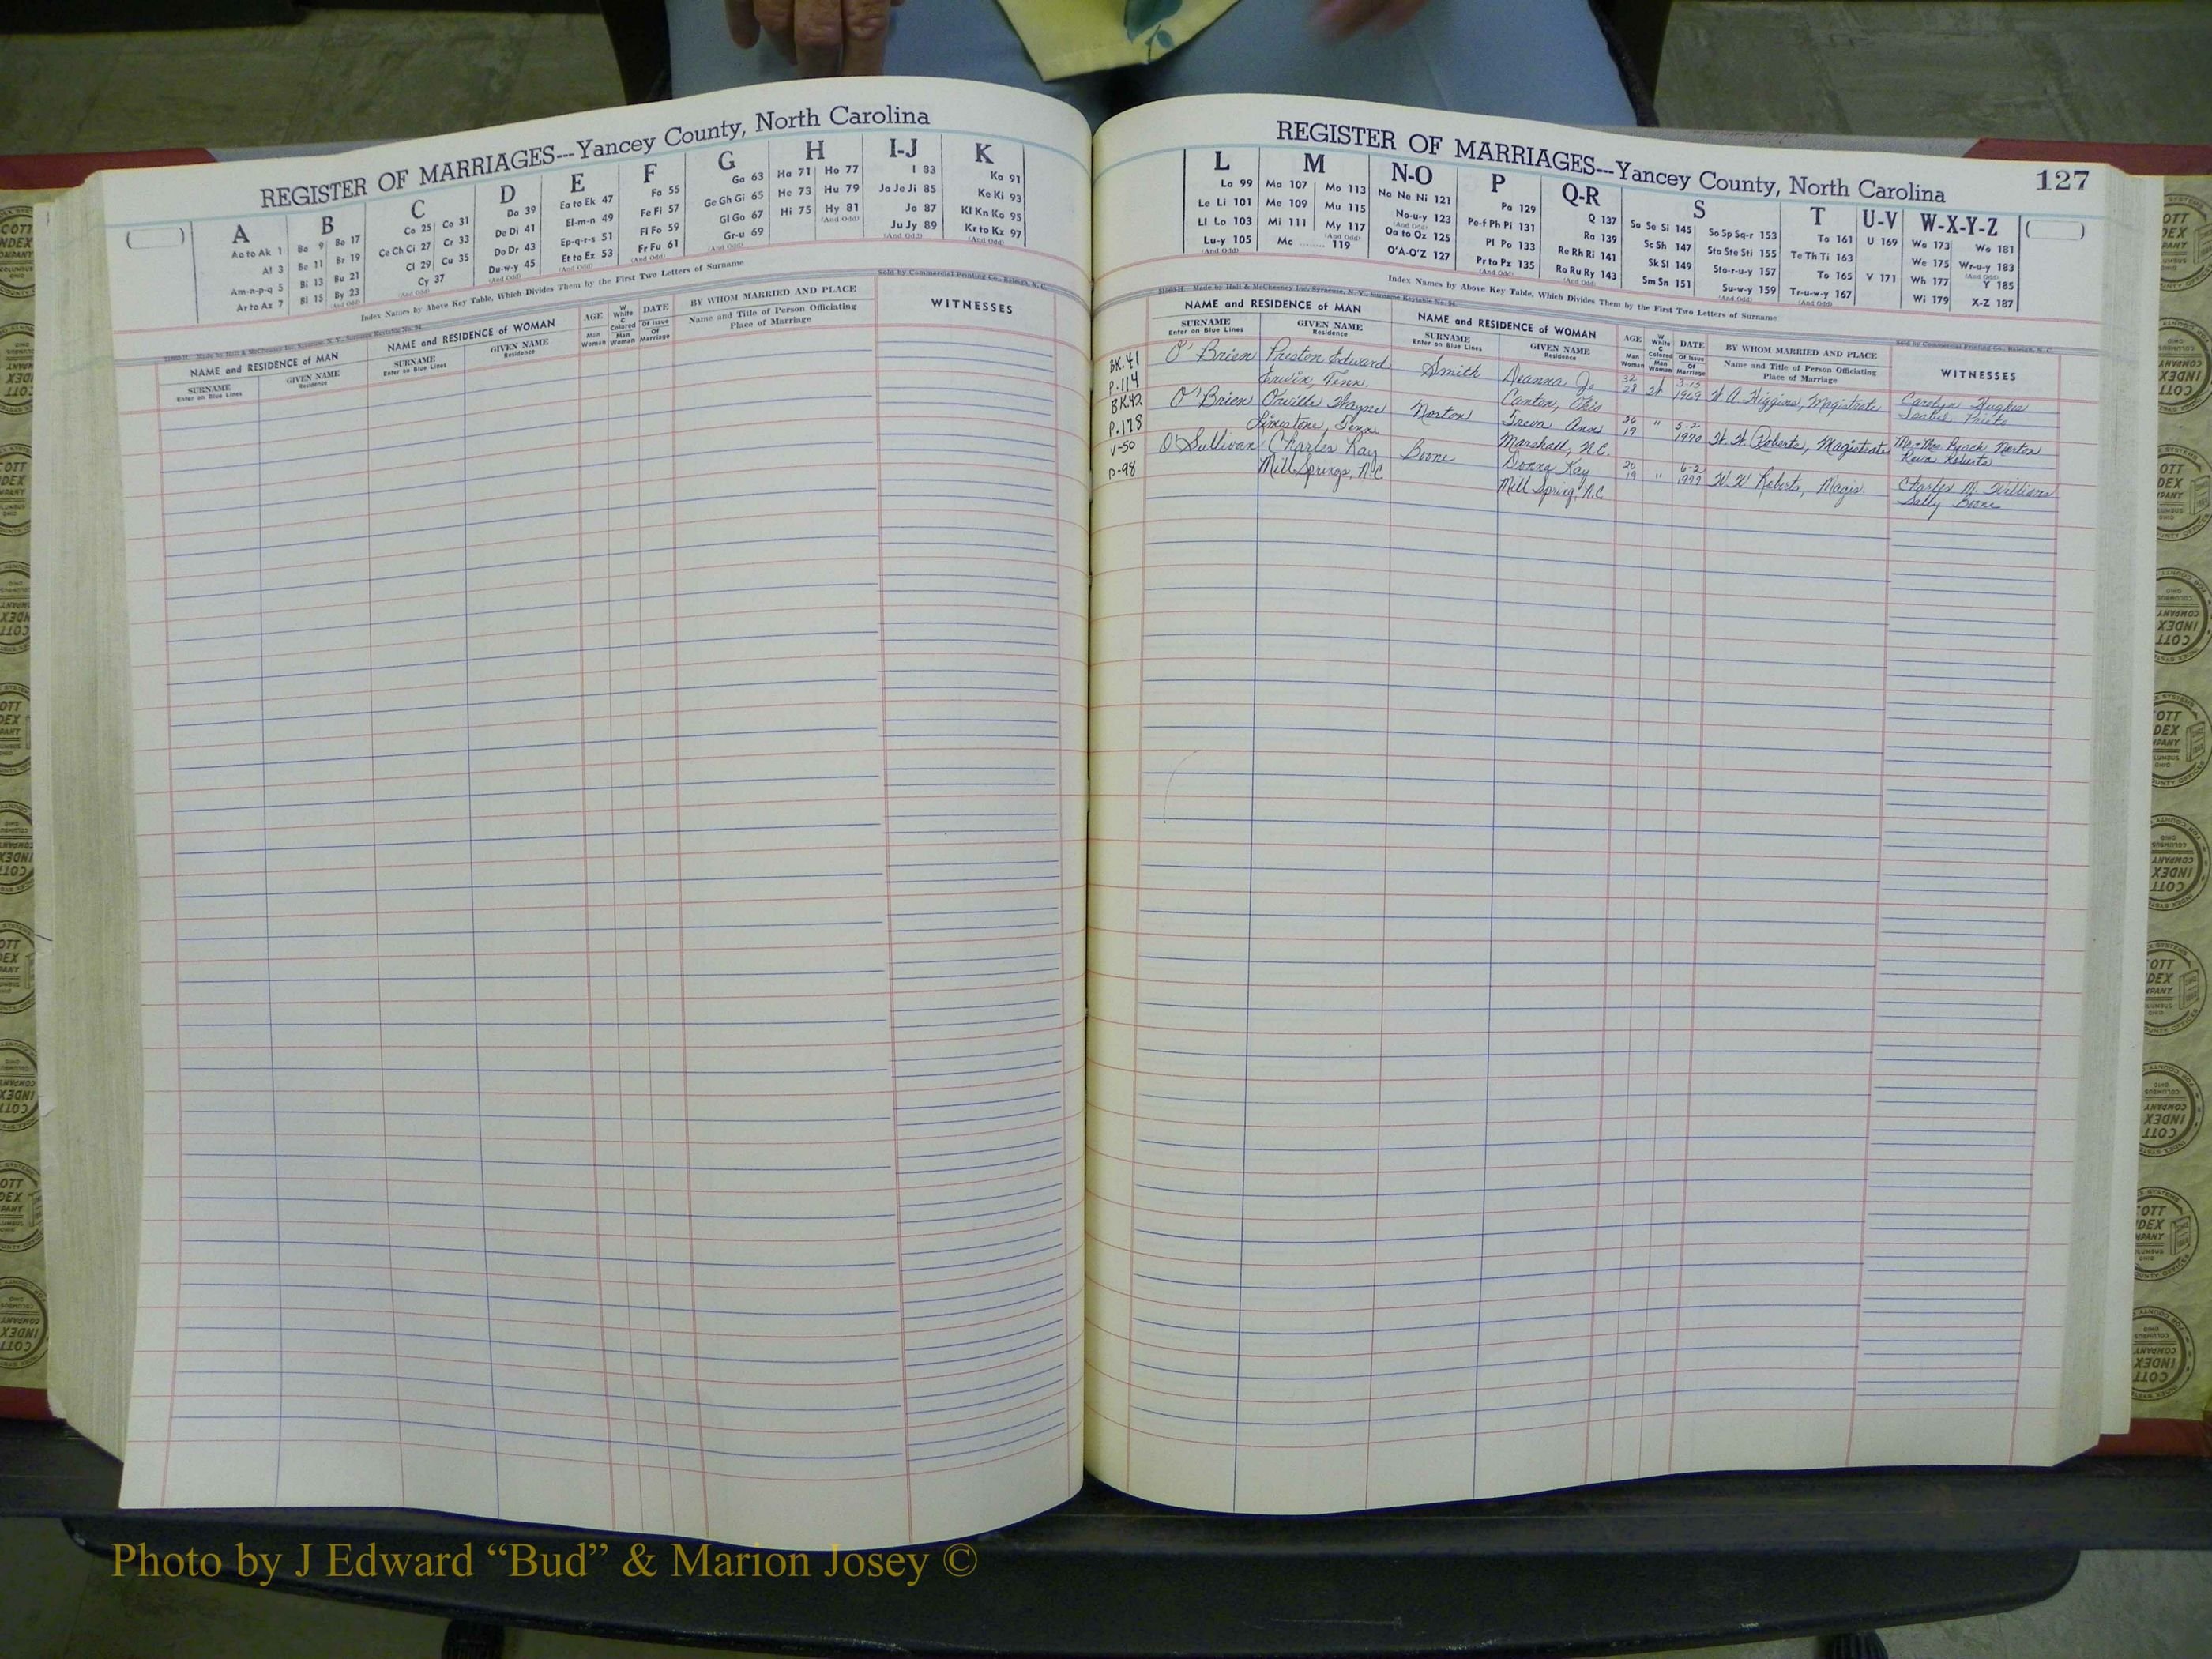 REGISTER OF MARRIAGES---Yancey County, North Carolina
A B C D E F G H I-J K
Aa to Ak 1
Al 3
Am-n-p-q 5
Ar to Az 7
Ba 9 Bo 17
Be 11 Br 19
Bi 13 Bu 21
Bl 15 By 23
(And Odd)
Ca 25 Co 31
Ce Ch Ci 27 Cr 33
Cl 29 Cu 35
(And Odd) Cy 37
Da 39
De Di 41
Do Dr 43
Du-w-y 45
(And Odd)
Ea to Ek 47
El-m-n 49
Ep-q-r-s 51
Et to Ez 53
(And Odd)
Fa 55
Fe Fi 57
Fl Fo 59
Fr Fu 61
(And Odd)
Ga 63
Ge Gh Gi 65
Gl Go 67
Gr-u 69
(And Odd)
Ha 71 Ho 77
He 73 Hu 79
Hi 75 Hy 81
(And Odd)
I 83
Ja Je Ji 85
Jo 87
Ju Jy 89
(And Odd)
Ka 91
Ke Ki 93
Kl Kn Ko 95
Kr to Kz 97
(And Odd)
Index Names by Above Key Table, Which Divides Them by the First Two Letters of Surname
Made by Hall & McChesney Inc, Syracuse, N. Y., Surname Keytable No. 94.
Sold by Commercial Printing Co., Raleigh, N. C.
NAME and RESIDENCE of MAN
SURNAME
Enter on Blue Lines
GIVEN NAME
Residence
NAME and RESIDENCE of WOMAN
SURNAME
Enter on Blue Lines
GIVEN NAME
Residence
AGE
Man
Woman
W
White
C
Colored
Man
Woman
DATE
Of Issue
Of
Marriage
BY WHOM MARRIED AND PLACE
Name and Title of Person Officiating
Place of Marriage
WITNESSES
REGISTER OF MARRIAGES---Yancey County, North Carolina
127
L M N-O P Q-R S T U-V W-X-Y-Z
La 99
Le Li 101
Ll Lo 103
Lu-y 105
(And Odd)
Ma 107 Mo 113
Me 109 Mu 115
Mi 111 My 117
(And Odd)
Mc ........ 119
Na Ne Ni 121
No-u-y 123
(And Odd)
Oa to Oz 125
O'A-O'Z 127
Pa 129
Pe-f Ph Pi 131
Pl Po 133
Pr to Pz 135
(And Odd)
Q 137
Ra 139
Re Rh Ri 141
Ro Ru Ry 143
(And Odd)
Sa Se Si 145 So Sp Sq-r 153
Sc Sh 147 Sta Ste Sti 155
Sk Sl 149 Sto-r-u-y 157
Sm Sn 151 Su-w-y 159
(And Odd)
Ta 161
Te Th Ti 163
To 165
Tr-u-w-y 167
(And Odd)
U 169
V 171
Wa 173 Wo 181
We 175 Wr-u-y 183
(And Odd)
Wh 177 Y 185
Wi 179 X-Z 187
Index Names by Above Key Table, Which Divides Them by the First Two Letters of Surname
Made by Hall & McChesney Inc, Syracuse, N. Y., Surname Keytable No. 94.
Sold by Commercial Printing Co., Raleigh, N. C.
NAME and RESIDENCE of MAN
SURNAME
Enter on Blue Lines
GIVEN NAME
Residence
NAME and RESIDENCE of WOMAN
SURNAME
Enter on Blue Lines
GIVEN NAME
Residence
AGE
Man
Woman
W
White
C
Colored
Man
Woman
DATE
Of Issue
Of
Marriage
BY WHOM MARRIED AND PLACE
Name and Title of Person Officiating
Place of Marriage
WITNESSES
BK. 41 O'Brien Preston Edward Smith Deanna Jo 32 3-15 W. A. Higgins, Magistrate Carolyn Hughes
P. 114 Erwin, Tenn. Canton, Ohio 28 1969
BK. 42 O'Brien Orville Wayne Norton Treva Ann 36 " 5-2 W. W. Roberts, Magistrate Mr. & Mrs. Norton
P. 178 Limestone, Tenn. Marshall, N.C. 19 1970 Roberts
V-50 O'Sullivan Charles Ray Boone Donna Kay 20 " 6-2 W. W. Roberts, Magis. Charles M. Williams
P-98 Mill Springs, N.C. Mill Spring, N.C. 19 1977 Sally Boone
Photo by J Edward “Bud” & Marion Josey ©